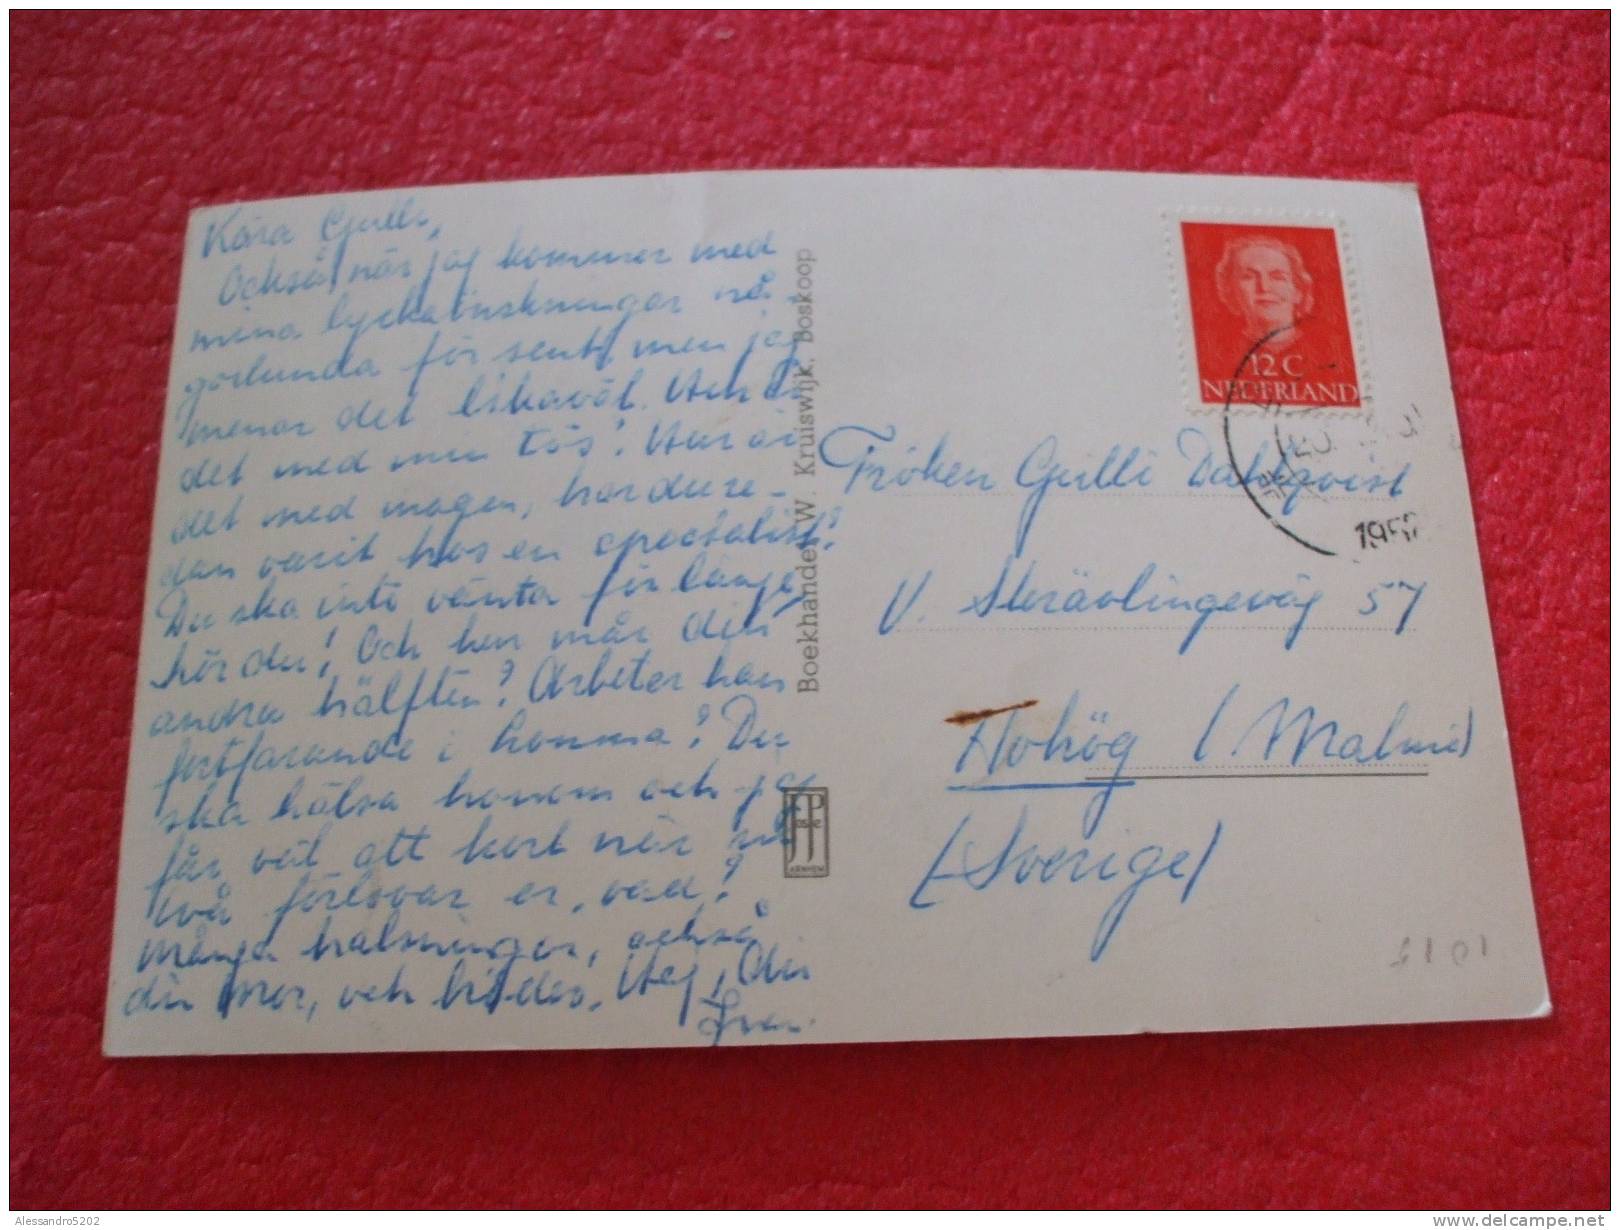 Kära Gulli,
Också när jag kommer med
mina lyckönskningar nå-
gorlunda för sent, men jag
menar det likaväl. Hur är
det med min tös? Hur är
det med magen, har du re-
dan varit hos en specialist?
Du ska inte vänta för länge,
hör du! Och hur mår din
andra hälften? Arbetar han
fortfarande i
Du
ska hälsa honom och jag
får väl ett kort när ni
två förlovar er, vad?
Många hälsningar, också
din mor, och bröder. Hej, din
Boekhandel W. Kruiswijk, Boskoop
JosPe
ARNHEM
12 C
NEDERLAND
195
Fröken Gulli Dahlqvist
V. Skrävlingeväg 57
Hohög (Malmö)
(Sverige)
Alessandro5202
www.delcampe.net